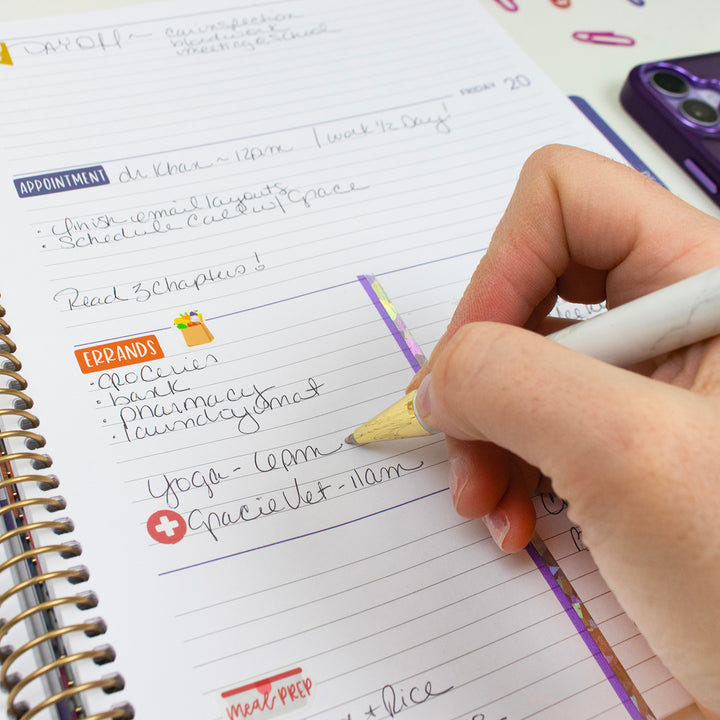 DAY OFF ~ car inspection
bloodwork
meeting @ school
FRIDAY 20
APPOINTMENT dr. Khan ~ 12pm | work 1/2 Day!
• finish email layouts
• Schedule Call w/ Grace
Read 3 Chapters!
ERRANDS
• groceries
• bank
• pharmacy
• laundrymat
Yoga - 6pm
Gracie Vet - 11am
MEAL PREP
+ Rice